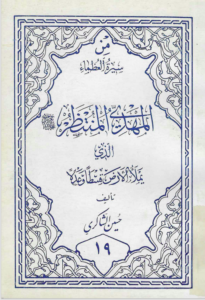 من
سيرة العظماء
المهدي المنتظر
الذي
يملأ الأرض قسطا وعدلا
تأليف
حسين الشاكري
١٩